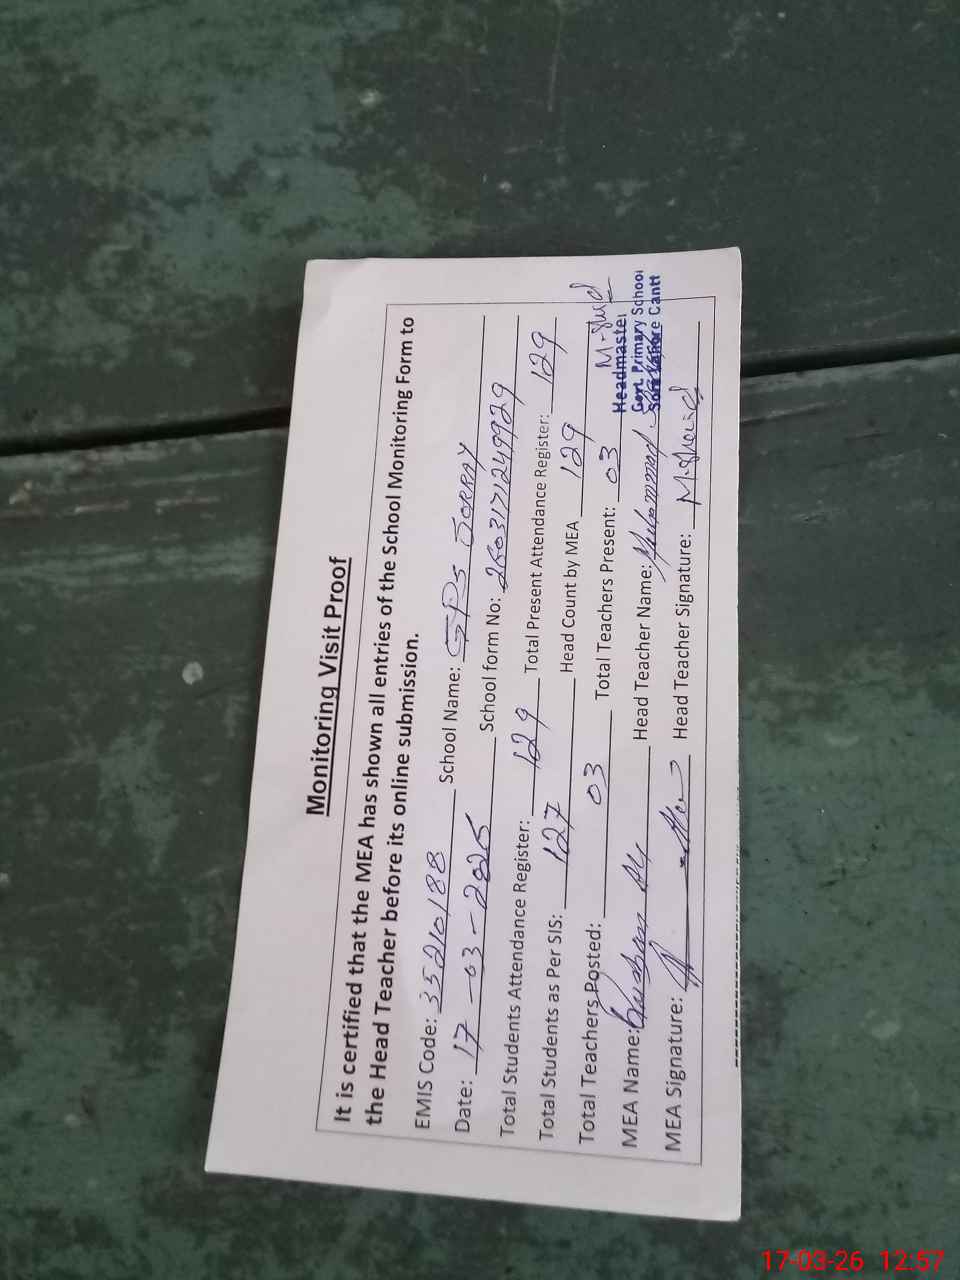 Monitoring Visit Proof
It is certified that the MEA has shown all entries of the School Monitoring Form to
the Head Teacher before its online submission.
EMIS Code: 35210188 School Name: GPS SORRAY
Date: 17-03-2026 School form No: 2603171249929
Total Students Attendance Register: 129 Total Present Attendance Register: 129
Total Students as Per SIS: 127 Head Count by MEA 129
Total Teachers Posted: 03 Total Teachers Present: 03
MEA Name: Head Teacher Name: Muhammad
MEA Signature: Head Teacher Signature:
Headmaster
Govt. Primary School
Lahore Cantt
17-03-26 12:57